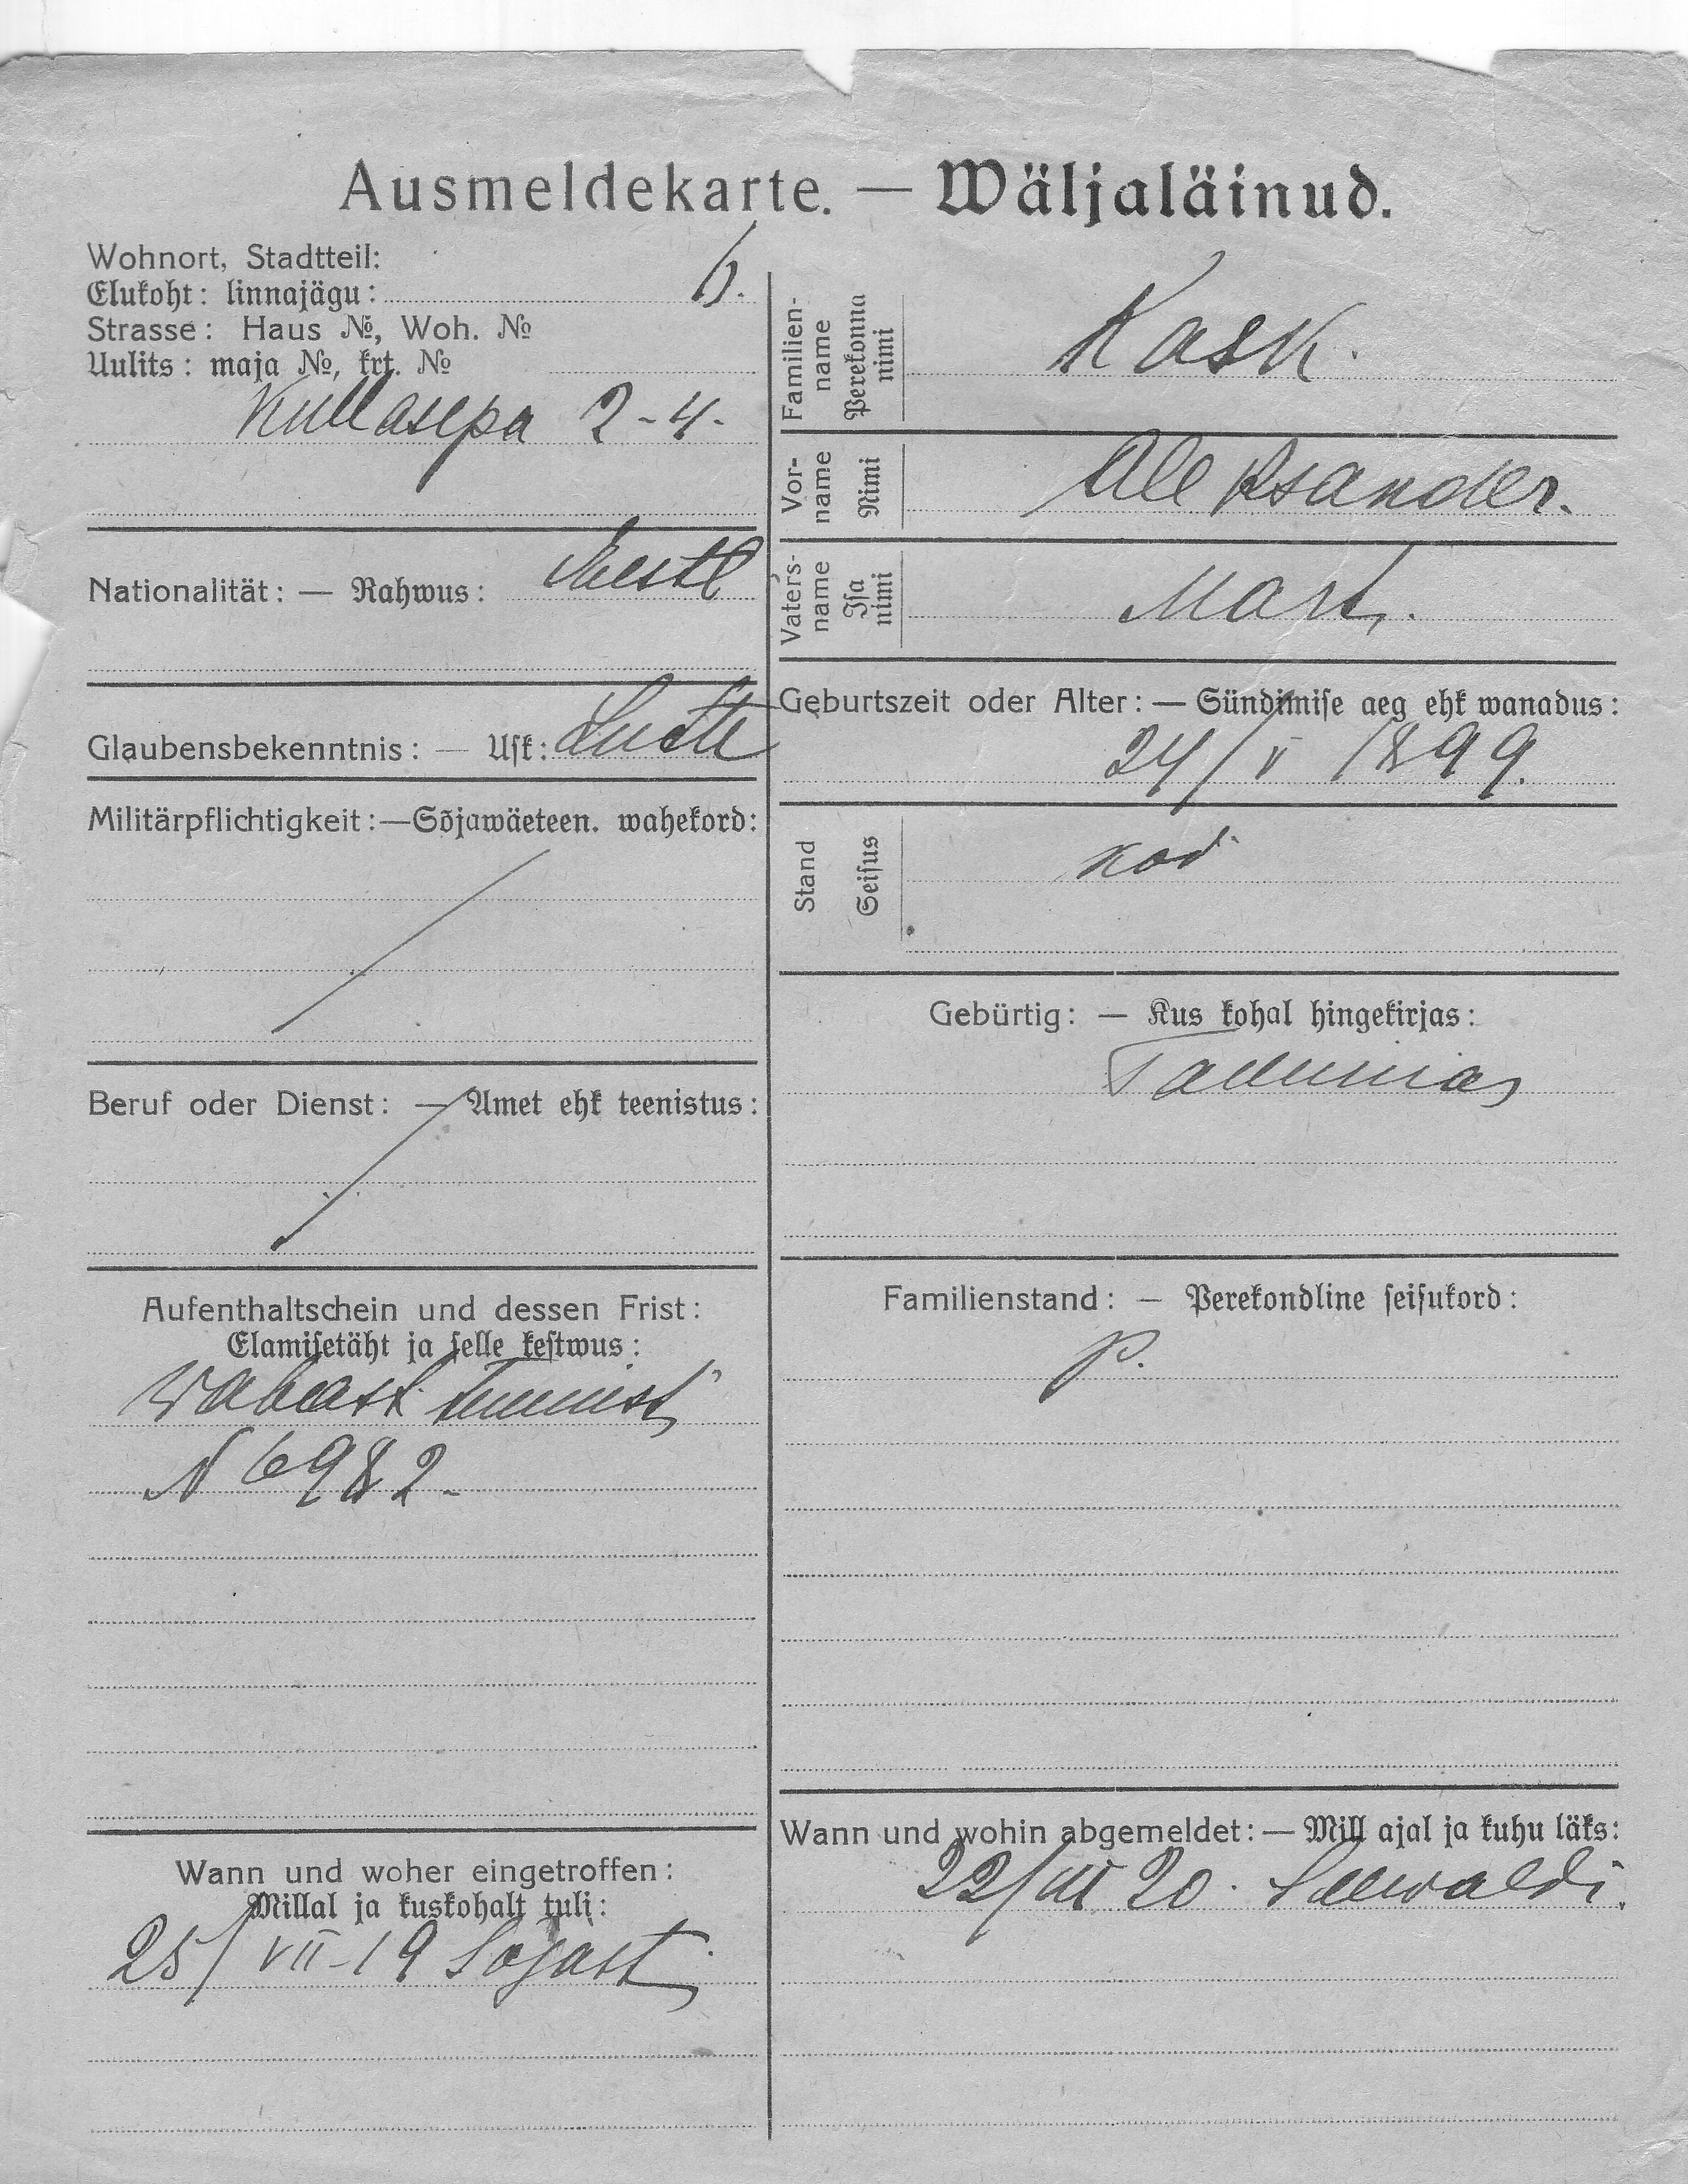 Ausmeldekarte. — Wäljaläinud.
Wohnort, Stadtteil:
Elukoht: linnajägu: 6.
Strasse: Haus №, Woh. №
Uulits: maja №, krt. №
Kullasepa 2-4.
Nationalität: — Rahwus: Eestl
Glaubensbekenntnis: — Usk: Luth
Militärpflichtigkeit: — Sõjawäeteen. wahekord:
Beruf oder Dienst: — Amet ehk teenistus:
Aufenthaltschein und dessen Frist:
Elamisetäht ja selle kestwus:
Wabast tunnist
N 6982.
Wann und woher eingetroffen:
Millal ja kuskohalt tuli:
25/VII-19 Sõjast
Familien-
name
Perekonna
nimi
Kask.
Vor-
name
Nimi
Aleksander.
Vaters-
name
Isa
nimi
Mart.
Geburtszeit oder Alter: — Sündimise aeg ehk wanadus:
24/V 1899.
Stand
Seisus
kod
Gebürtig: — Kus kohal hingekirjas:
Tallinnas
Familienstand: — Perekondline seisukord:
p.
Wann und wohin abgemeldet: — Mill ajal ja kuhu läks:
22/III 20. Seewaldi.